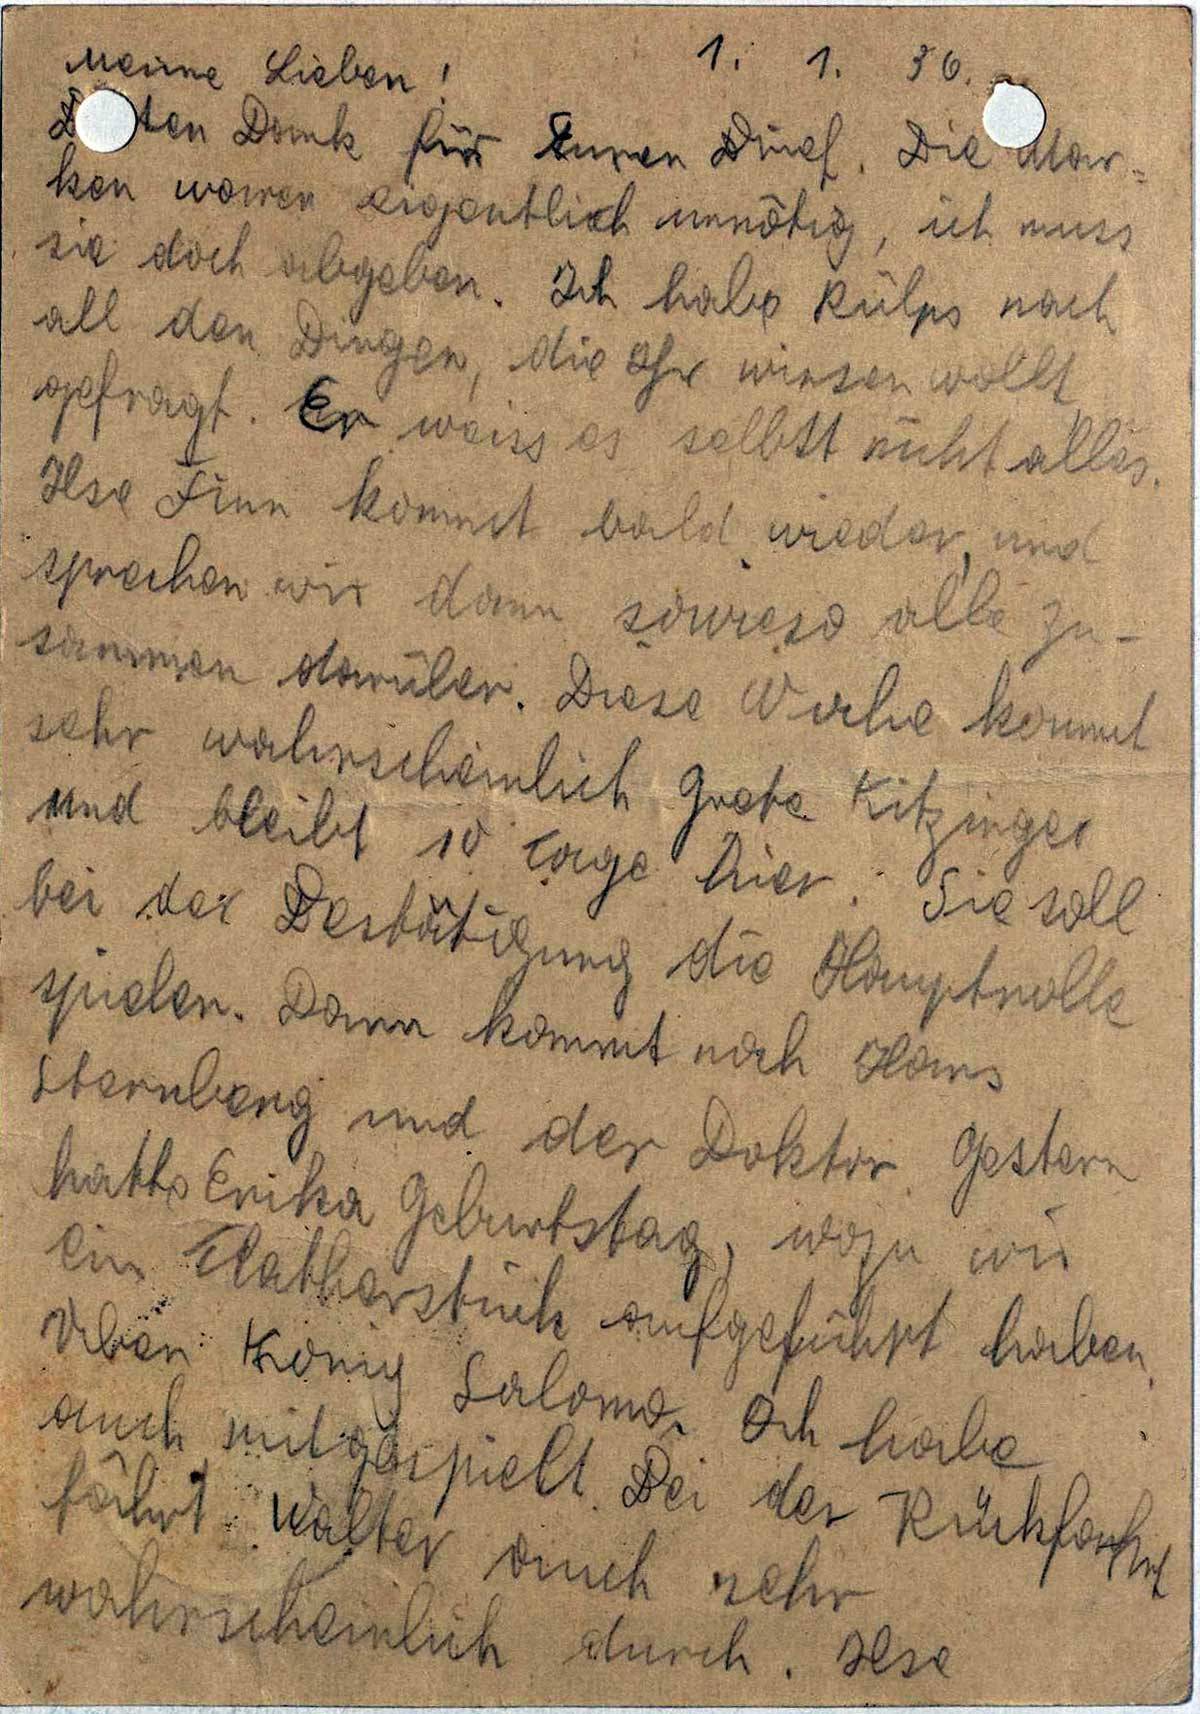 Meine Lieben! 1. 1. 36.
B ten Dank für Euren Brief. Die Mar-
ken waren eigentlich unnötig, ich muss
sie doch abgeben. Ich habe Külps nach
all den Dingen, die Ihr wissen wollt
gefragt. Er weiss es selbst nicht alles.
Ilse Finn kommt bald wieder, und
sprechen wir dann sowieso alle zu-
sammen darüber. Diese Woche kommt
sehr wahrscheinlich Grete Kitzinger
und bleibt 10 Tage hier. Sie soll
bei der Bestätigung die Hauptrolle
spielen. Dann kommt noch Hans
Sternberg und der Doktor. Gestern
hatte Erika Geburtstag, wozu wir
ein Theaterstück aufgeführt haben.
Über König Salomo. Ich habe
auch mitgespielt. Bei der Rückfahrt
fährt Walter auch sehr
wahrscheinlich durch. Ilse